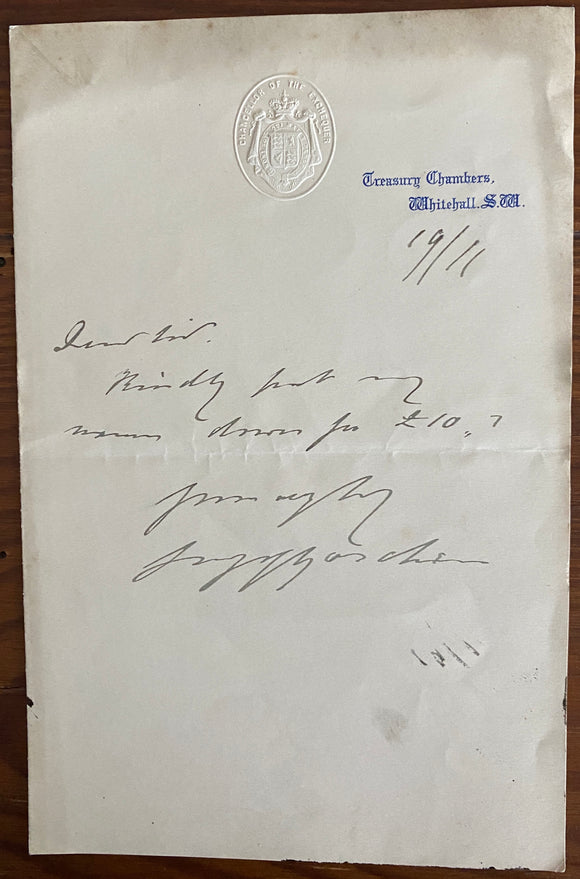 CHANCELLOR OF THE EXCHEQUER
Treasury Chambers,
Whitehall. S.W.
19/11
Dear Sir.
Kindly put my
name down for £10.,?
Goschen